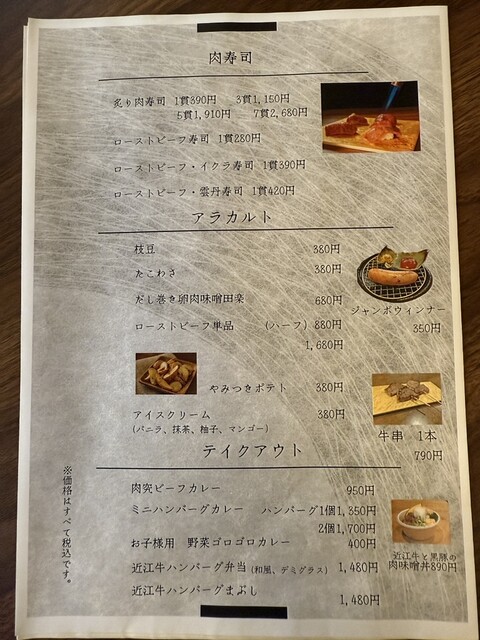 肉寿司
炙り肉寿司 1貫390円 3貫1,150円
5貫1,910円 7貫2,680円
ローストビーフ寿司 1貫280円
ローストビーフ・イクラ寿司 1貫390円
ローストビーフ・雲丹寿司 1貫420円
アラカルト
枝豆 380円
たこわさ 380円
だし巻き卵肉味噌田楽 680円
ローストビーフ単品 (ハーフ) 880円
1,680円
ジャンボウィンナー
350円
やみつきポテト 380円
アイスクリーム 380円
(バニラ、抹茶、柚子、マンゴー)
牛串 1本
790円
テイクアウト
肉突ビーフカレー 950円
ミニハンバーグカレー ハンバーグ1個1,350円
2個1,700円
お子様用 野菜ゴロゴロカレー 400円
近江牛ハンバーグ弁当 (和風、デミグラス) 1,480円
近江牛ハンバーグまぶし 1,480円
近江牛と黒豚の
肉味噌丼890円
※価格はすべて税込です。